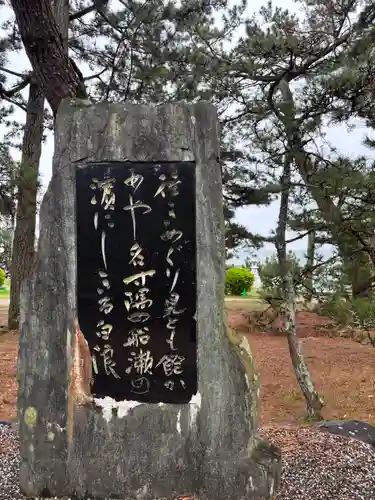 往きめぐり見とも飽か
めや名寸隅の船瀬の
濱にしきる白浪